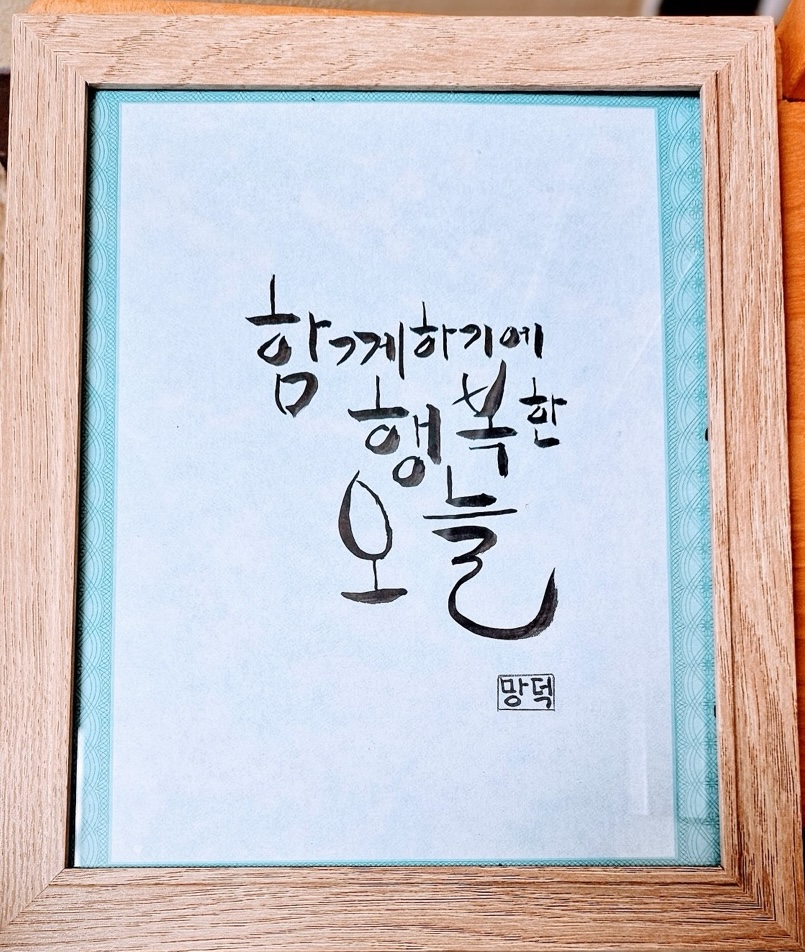 함께하기에
행복한
오늘
망덕